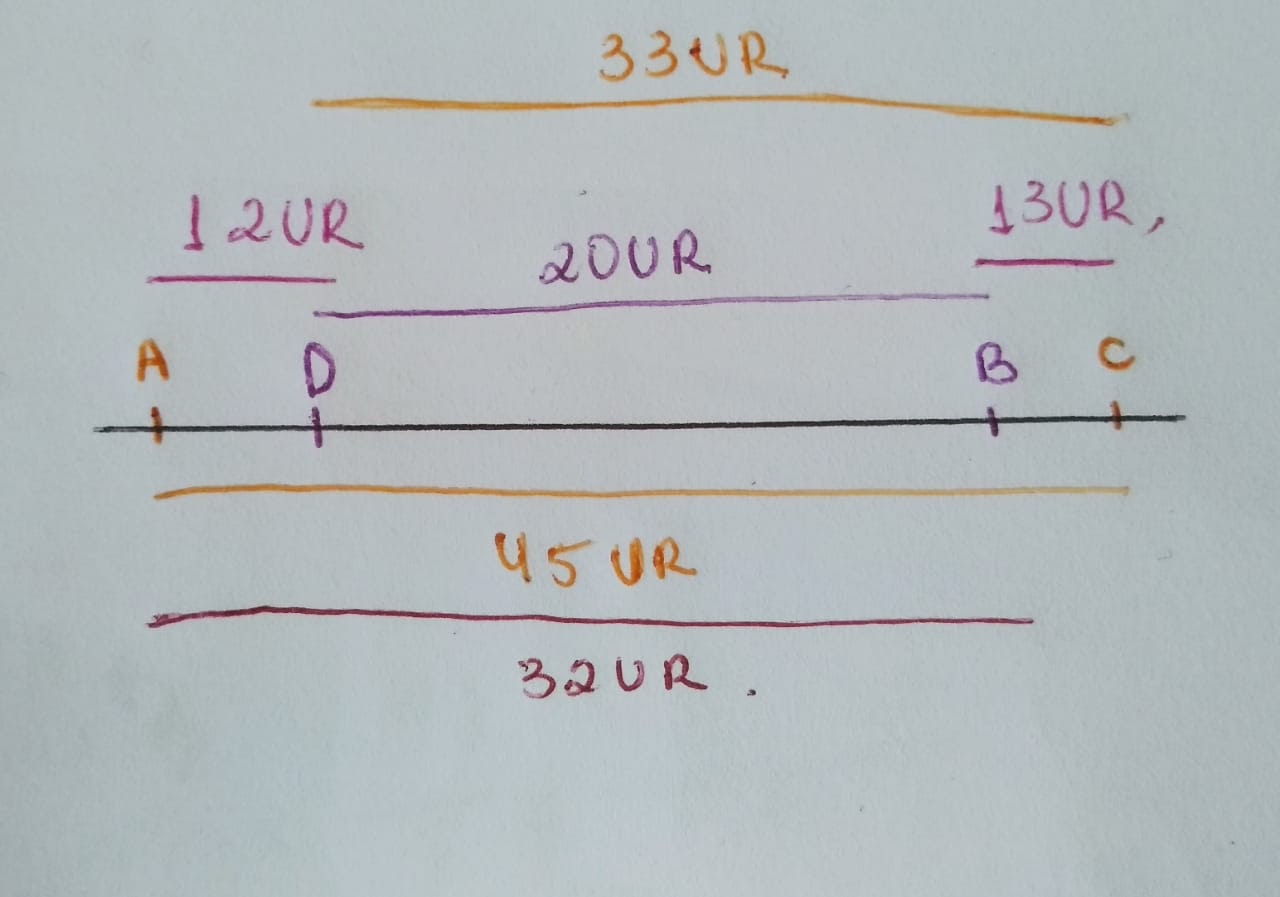 33UR
12UR
13UR,
20UR
A D B C
45UR
32UR.